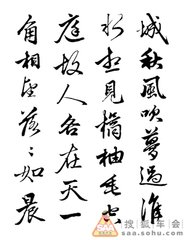 城秋風吹夢過淮
水想見橘柚垂空
庭故人各在天一
角相望落落如晨
搜狐车会
saa.sohu.com